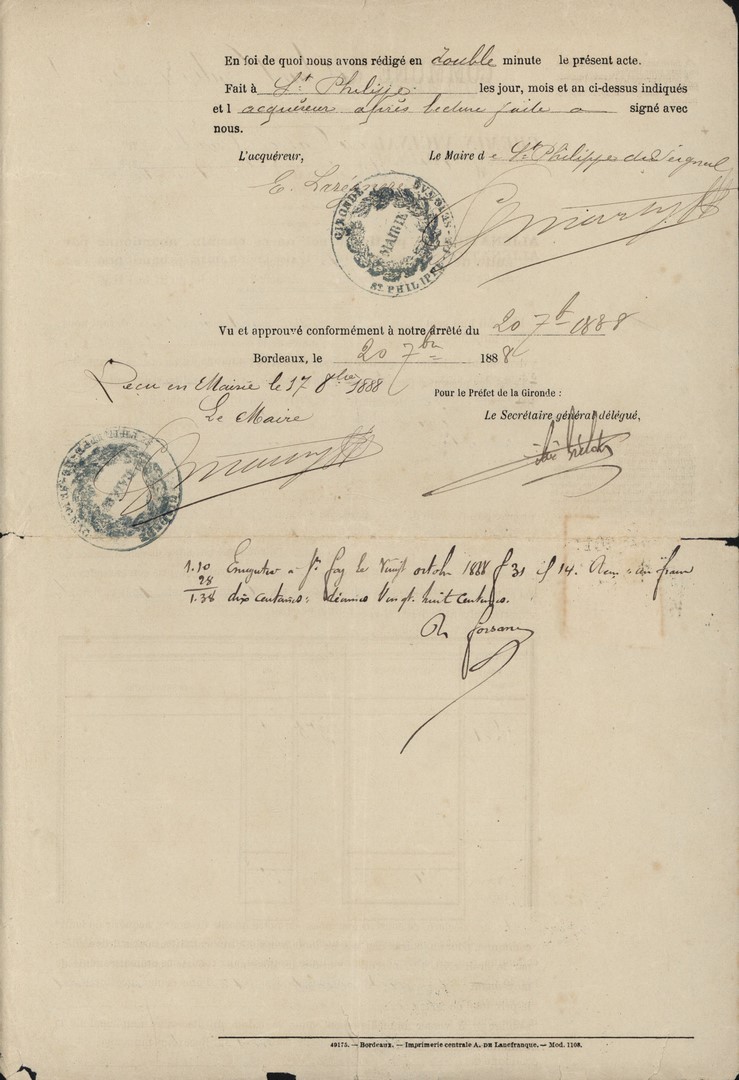 En foi de quoi nous avons rédigé en double minute le présent acte.
Fait à St Philippe les jour, mois et an ci-dessus indiqués
et l acquéreur après lecture faite a signé avec
nous.
L'acquéreur, Le Maire de St Philippe du Seignal
E.
GIRONDE
MAIRIE
ST PHILIPPE-
Vu et approuvé conformément à notre arrêté du 20 7b 1888
Bordeaux, le 20 7bre 1888
Reçu en Mairie le 17 8bre 1888
Pour le Préfet de la Gironde :
Le Maire
Le Secrétaire général délégué,
1.10 Enregistré a Ste Foy le vingt octobre 1888 f 31 cf 14. Reçu un franc
28
1.38 dix centimes: décimes vingt huit centimes.
49175. — Bordeaux. — Imprimerie centrale A. DE Lanefranque. — Mod. 1108.